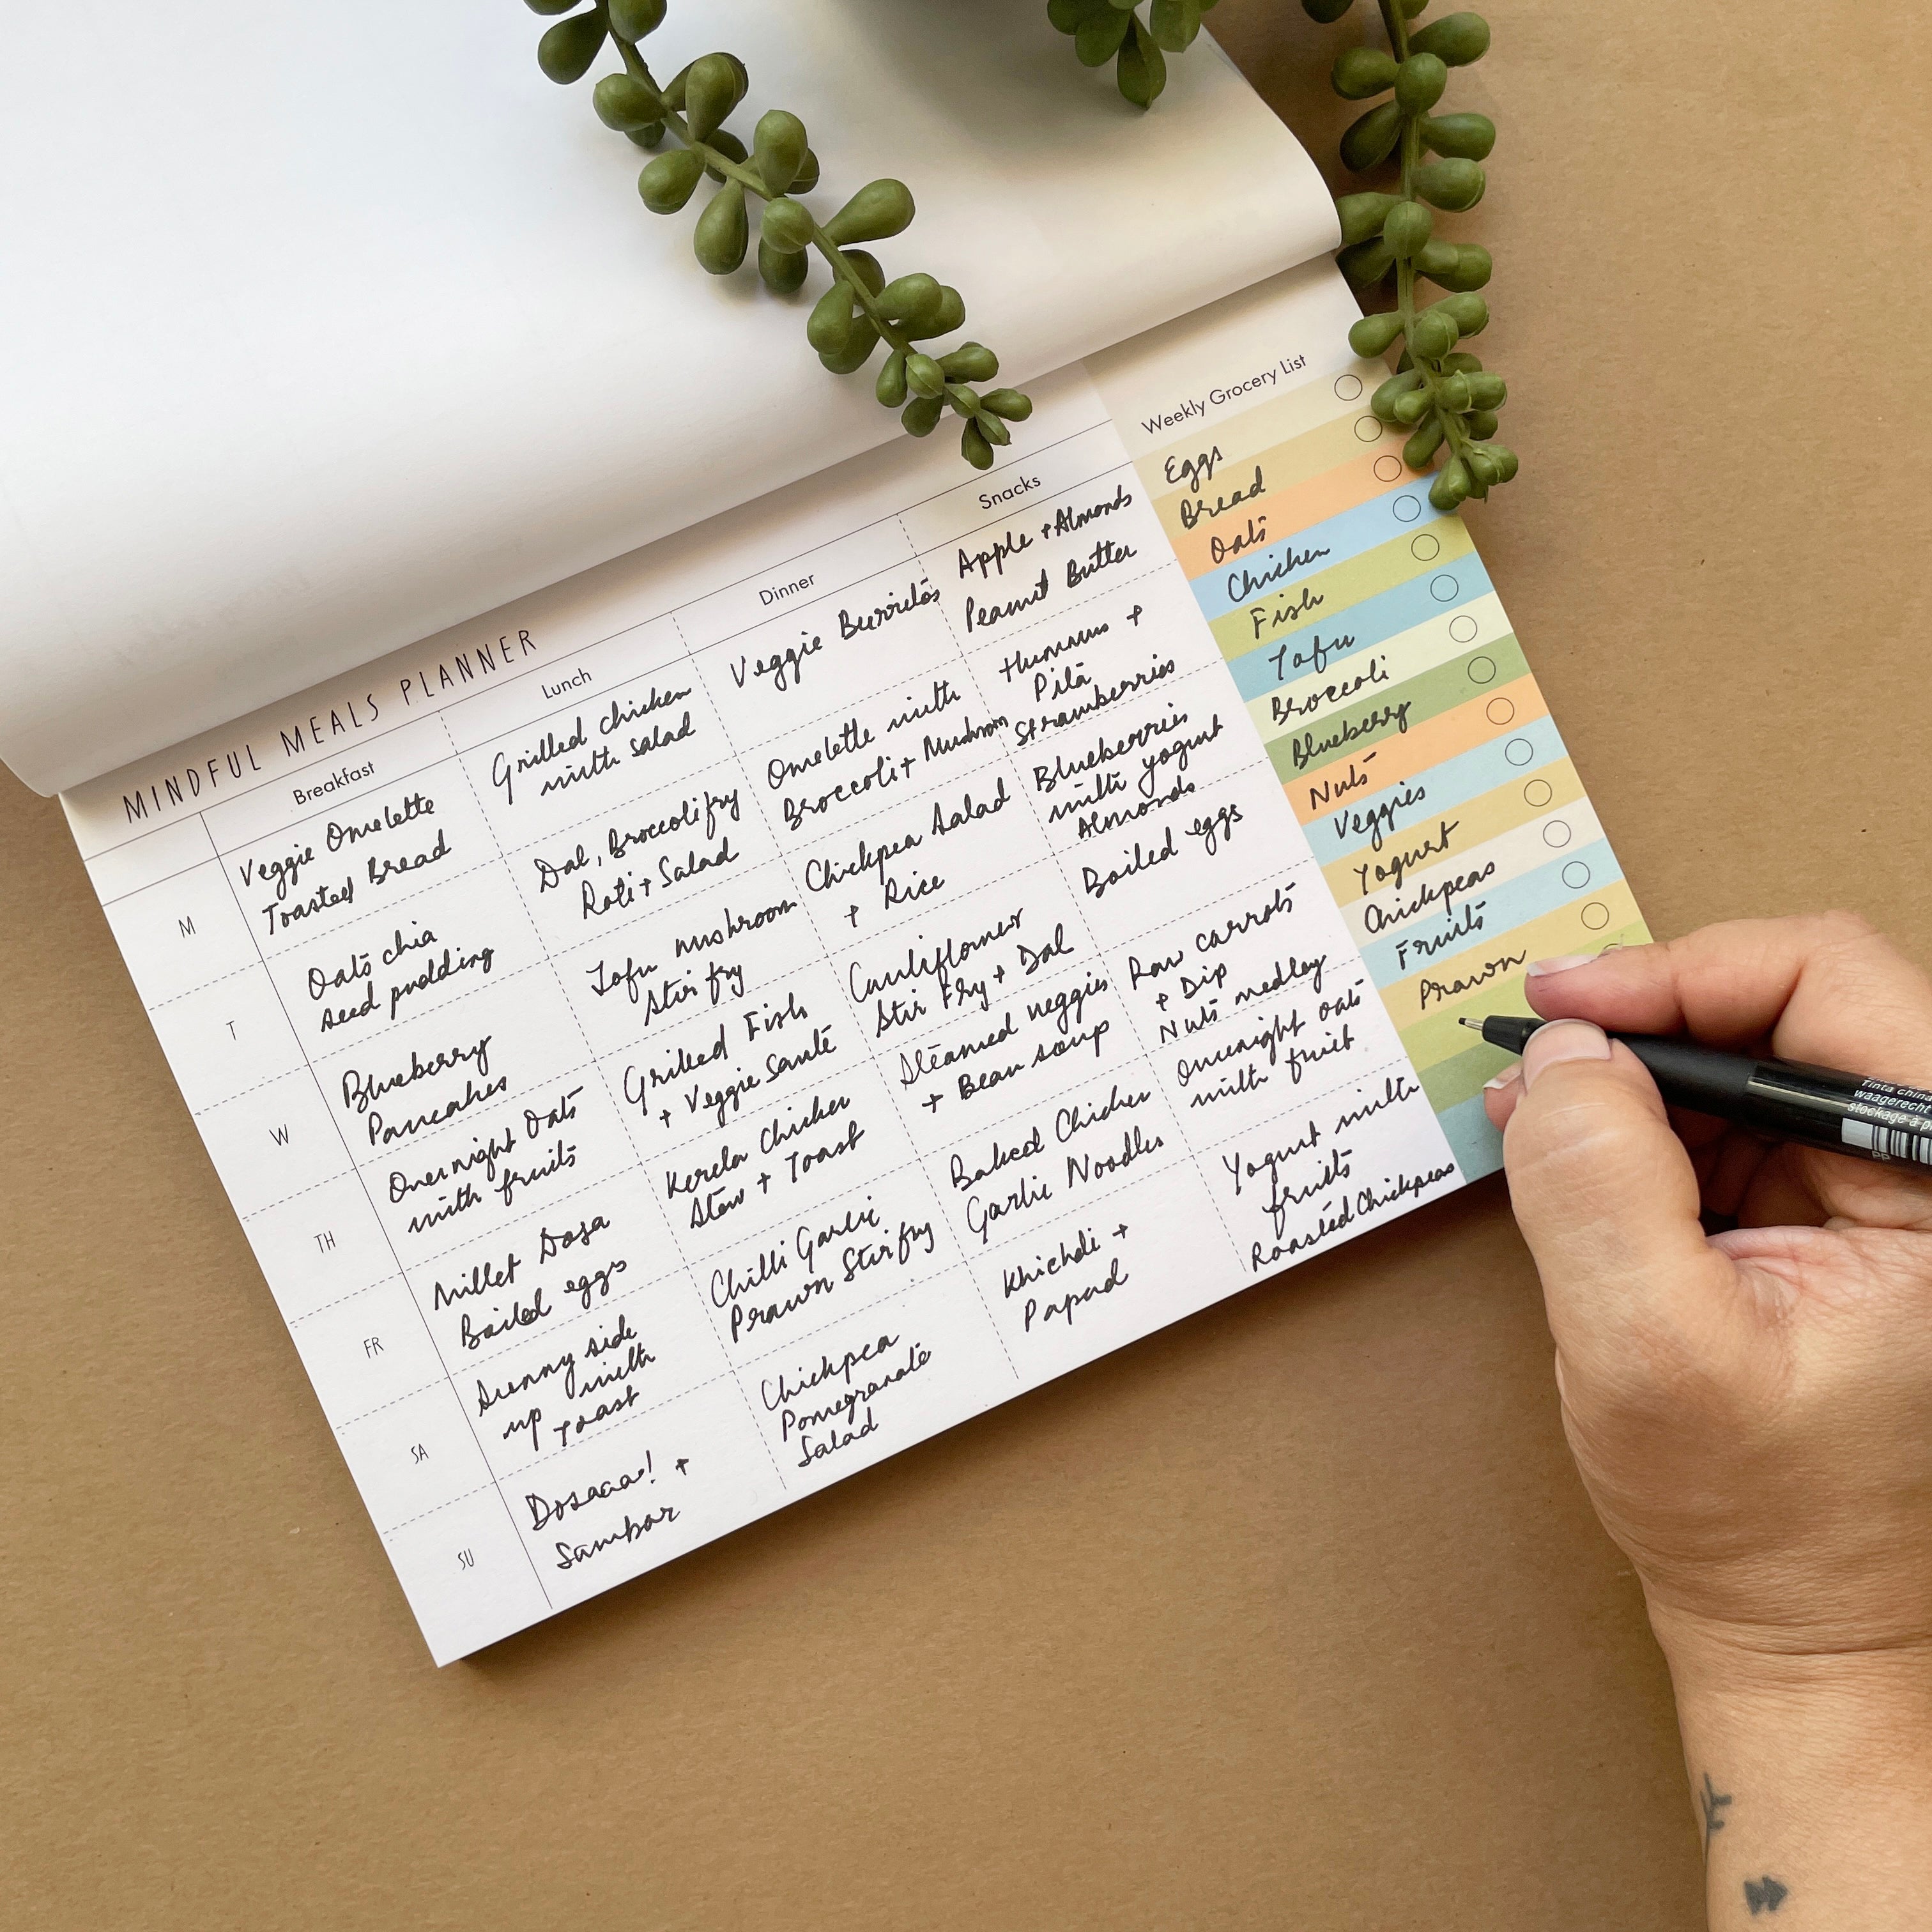 MINDFUL MEALS PLANNER
Breakfast
Lunch
Dinner
Snacks
M
Veggie Omelette
Toasted Bread
Grilled chicken
with salad
Veggie Burritos
Apple + Almonds
Peanut Butter
T
Oats chia
seed pudding
Dal, Broccoli fry
Roti + Salad
Omelette with
Broccoli + Mushroom
Hummus +
Pita
Strawberries
W
Blueberry
Pancakes
Tofu mushroom
Stir fry
Chickpea Salad
+ Rice
Blueberries
with yogurt
Almonds
TH
Overnight Oats
with fruits
Grilled Fish
+ Veggie Sauté
Cauliflower
Stir Fry + Dal
Boiled eggs
FR
Millet Dosa
Boiled eggs
Kerela Chicken
Stew + Toast
Steamed veggies
+ Bean soup
Raw carrots
+ Dip
Nuts medley
SA
Sunny side
up with
Toast
Chilli Garlic
Prawn Stir fry
Baked Chicken
Garlic Noodles
Overnight oats
with fruit
SU
Dosaaa! +
Sambar
Chickpea
Pomegranate
Salad
Khichdi +
Papad
Yogurt with
fruits
Roasted Chickpeas
Weekly Grocery List
Eggs
Bread
Oats
Chicken
Fish
Tofu
Broccoli
Blueberry
Nuts
Veggies
Yogurt
Chickpeas
Fruits
Prawn
waagerecht
PP